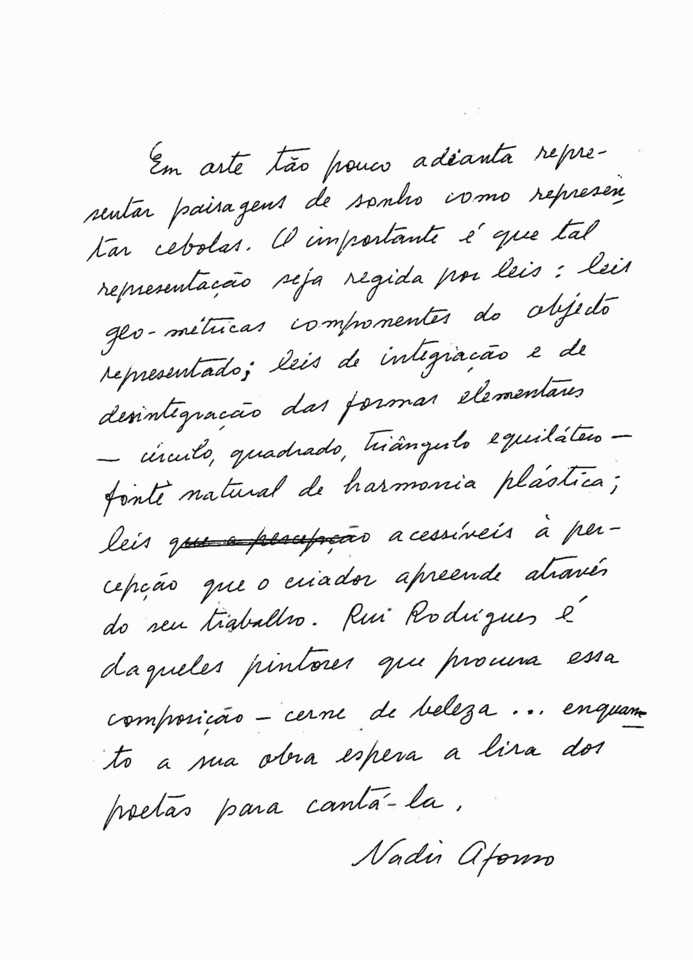 Em arte tão pouco adianta repre-
sentar paisagens de sonho como represen
tar cebolas. O importante é que tal
representação seja regida por leis: leis
geo-métricas componentes do objecto
representado; leis de integração e de
desintegração das formas elementares
— círculo, quadrado, triângulo equilátero —
fonte natural de harmonia plástica;
leis que a percepção acessíveis à per-
cepção que o criador apreende através
do seu trabalho. Rui Rodrigues é
daqueles pintores que procura essa
composição — cerne de beleza ... enquan
to a sua obra espera a lira dos
poetas para cantá-la.
Nadir Afonso